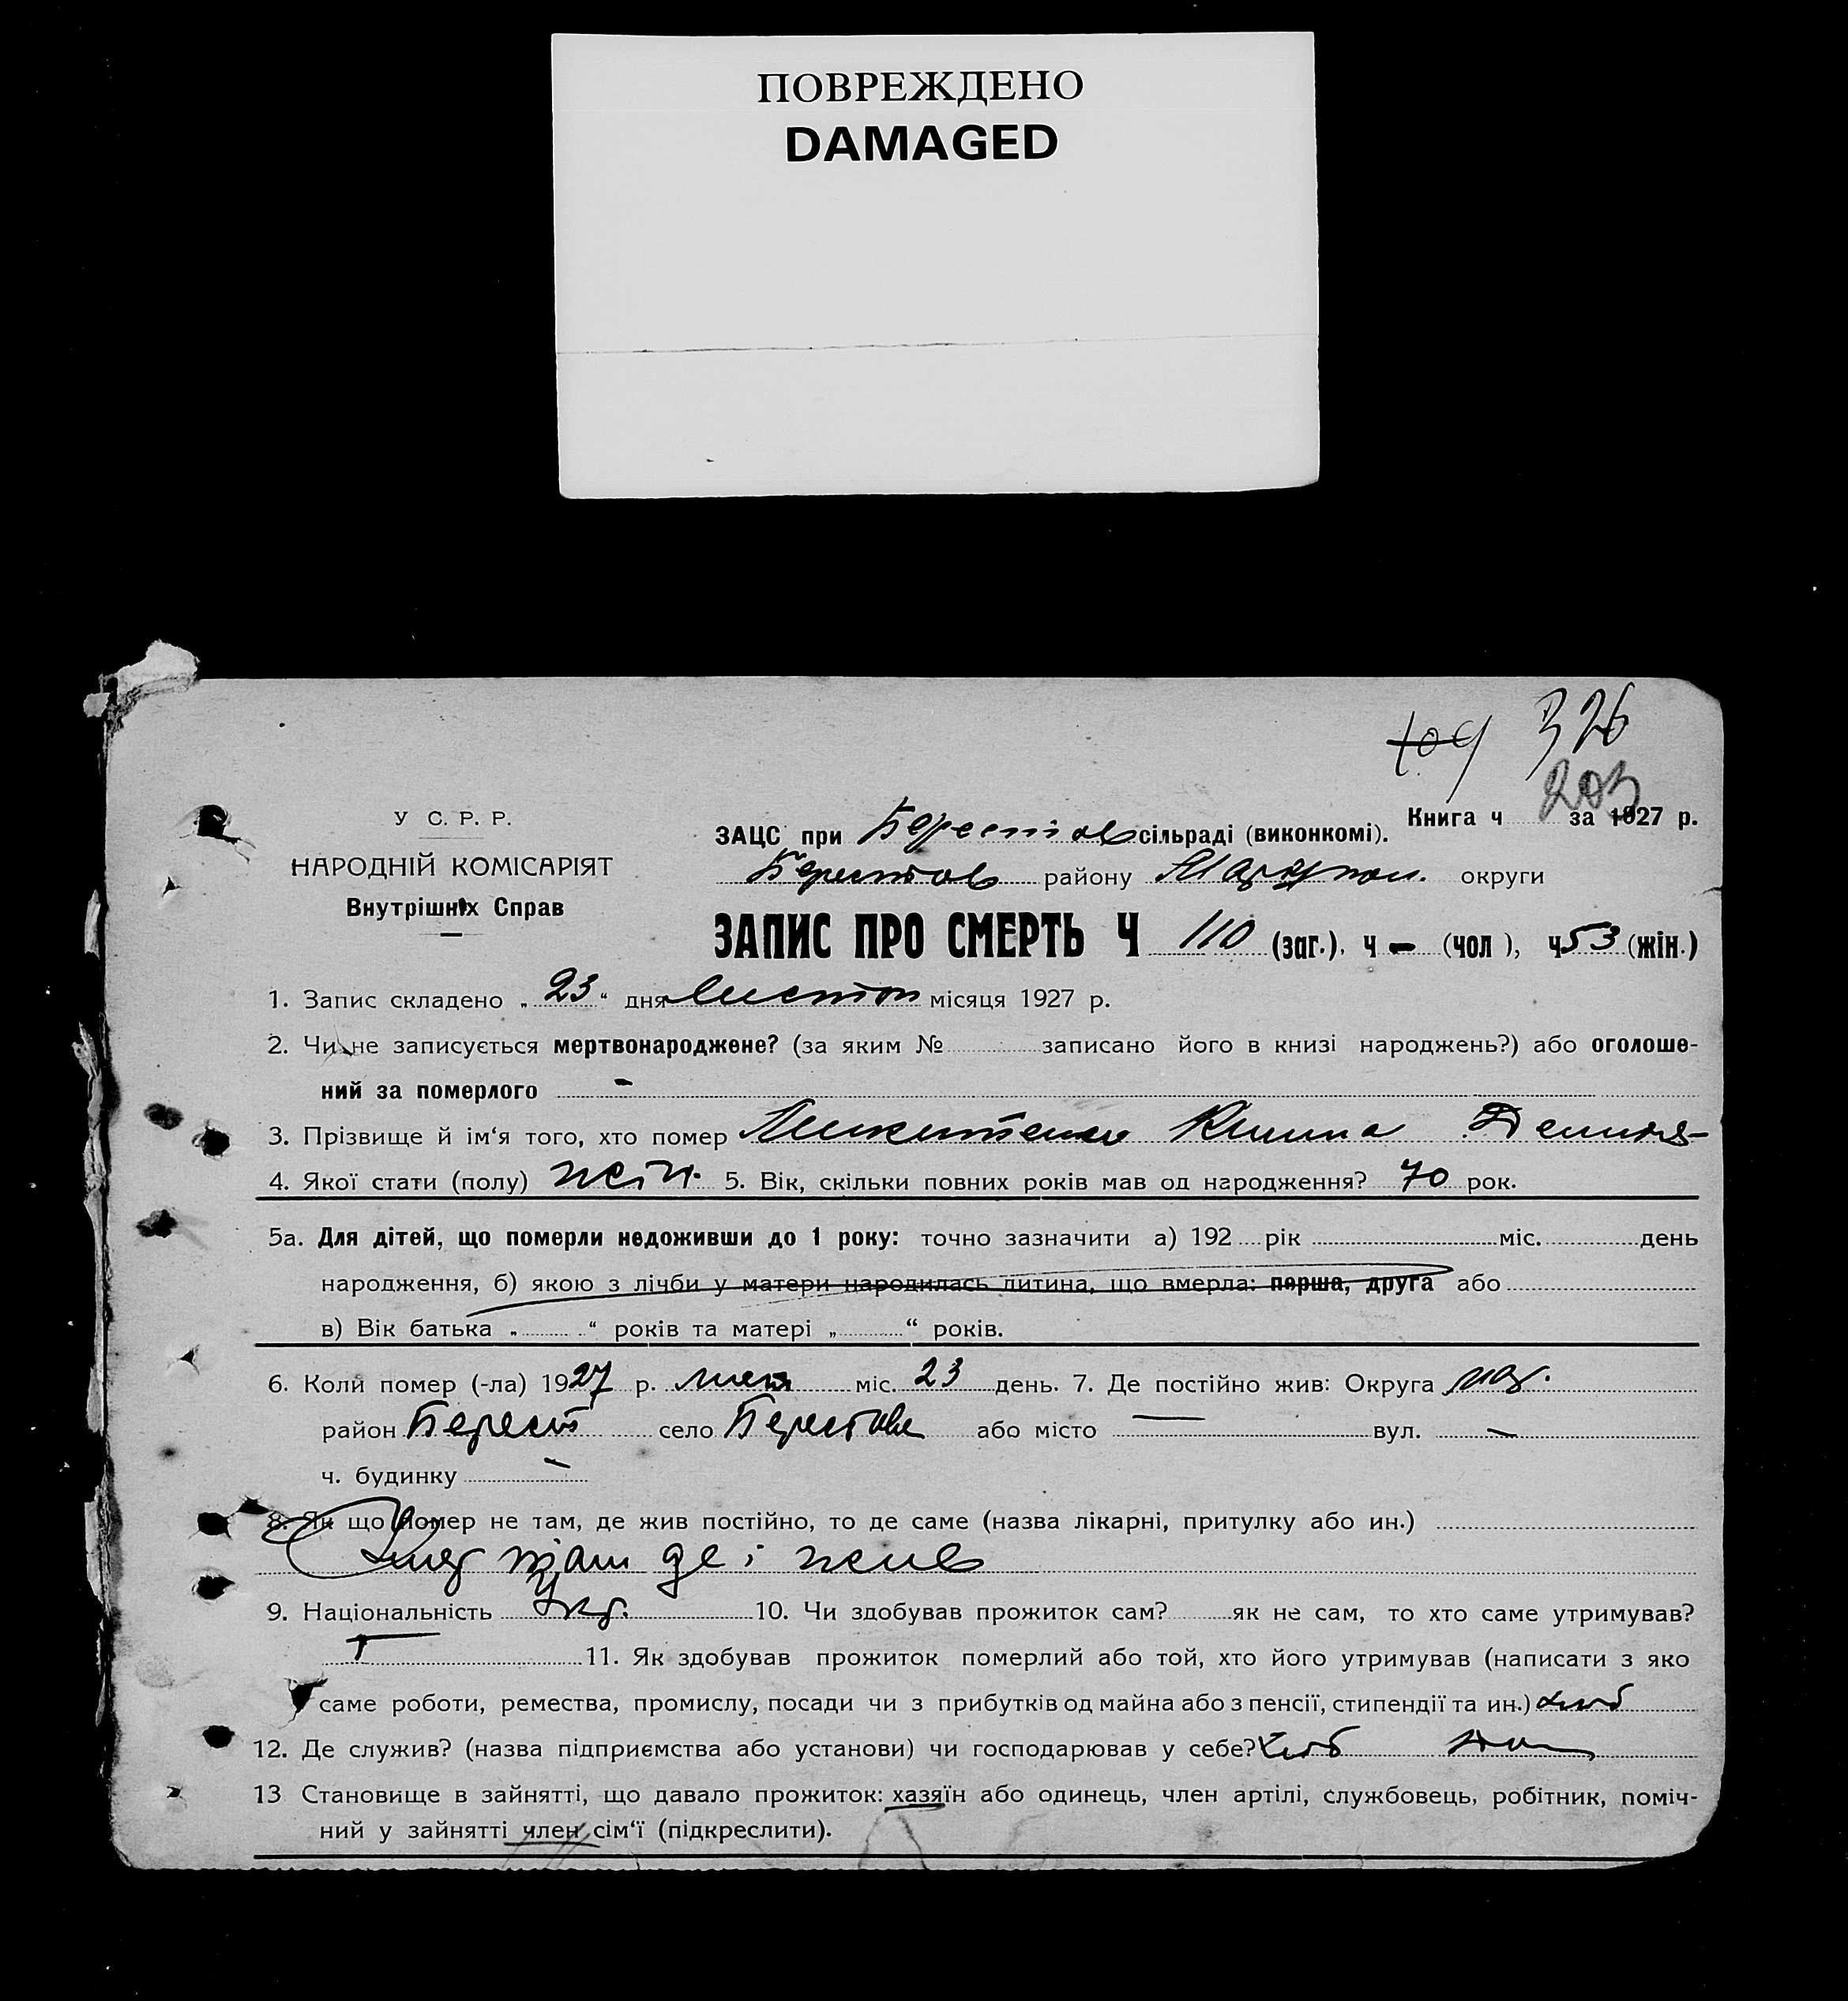 ПОВРЕЖДЕНО
DAMAGED
109 326
203
У С. Р. Р.
НАРОДНІЙ КОМІСАРІЯТ
Внутрішніх Справ
Книга ч за 1927 р.
ЗАЦС при Берестов сільраді (виконкомі).
Берестов району Маріупол. округи
ЗАПИС ПРО СМЕРТЬ Ч 110 (заг.), ч - (чол), ч 53 (жін.)
1. Запис складено „23“ дня Листоп місяця 1927 р.
2. Чи не записується мертвонароджене? (за яким № записано його в книзі народжень?) або оголоше-
ний за померлого -
3. Прізвище й ім‘я того, хто помер Никитенко
4. Якої стати (полу) жін. 5. Вік, скільки повних років мав од народження? 70 рок.
5а. Для дітей, що померли недоживши до 1 року: точно зазначити а) 192 рік міс. день
народження, б) якою з лічби у матери народилась дитина, що вмерла: перша, друга або
в) Вік батька „ “ років та матері „ “ років.
6. Коли помер (-ла) 1927 р. міс. 23 день. 7. Де постійно жив: Округа мар.
район Берест село Берестове або місто — вул. —
ч. будинку -
8. Як що помер не там, де жив постійно, то де саме (назва лікарні, притулку або ин.)
Умер там де і жив
9. Національність Укр. 10. Чи здобував прожиток сам? як не сам, то хто саме утримував?
11. Як здобував прожиток померлий або той, хто його утримував (написати з яко
саме роботи, ремества, промислу, посади чи з прибутків од майна або з пенсії, стипендії та ин.) хліб
12. Де служив? (назва підприємства або установи) чи господарював у себе? хліб
13 Становище в зайнятті, що давало прожиток: хазяїн або одинець, член артілі, службовець, робітник, поміч-
ний у зайнятті член сім‘ї (підкреслити).